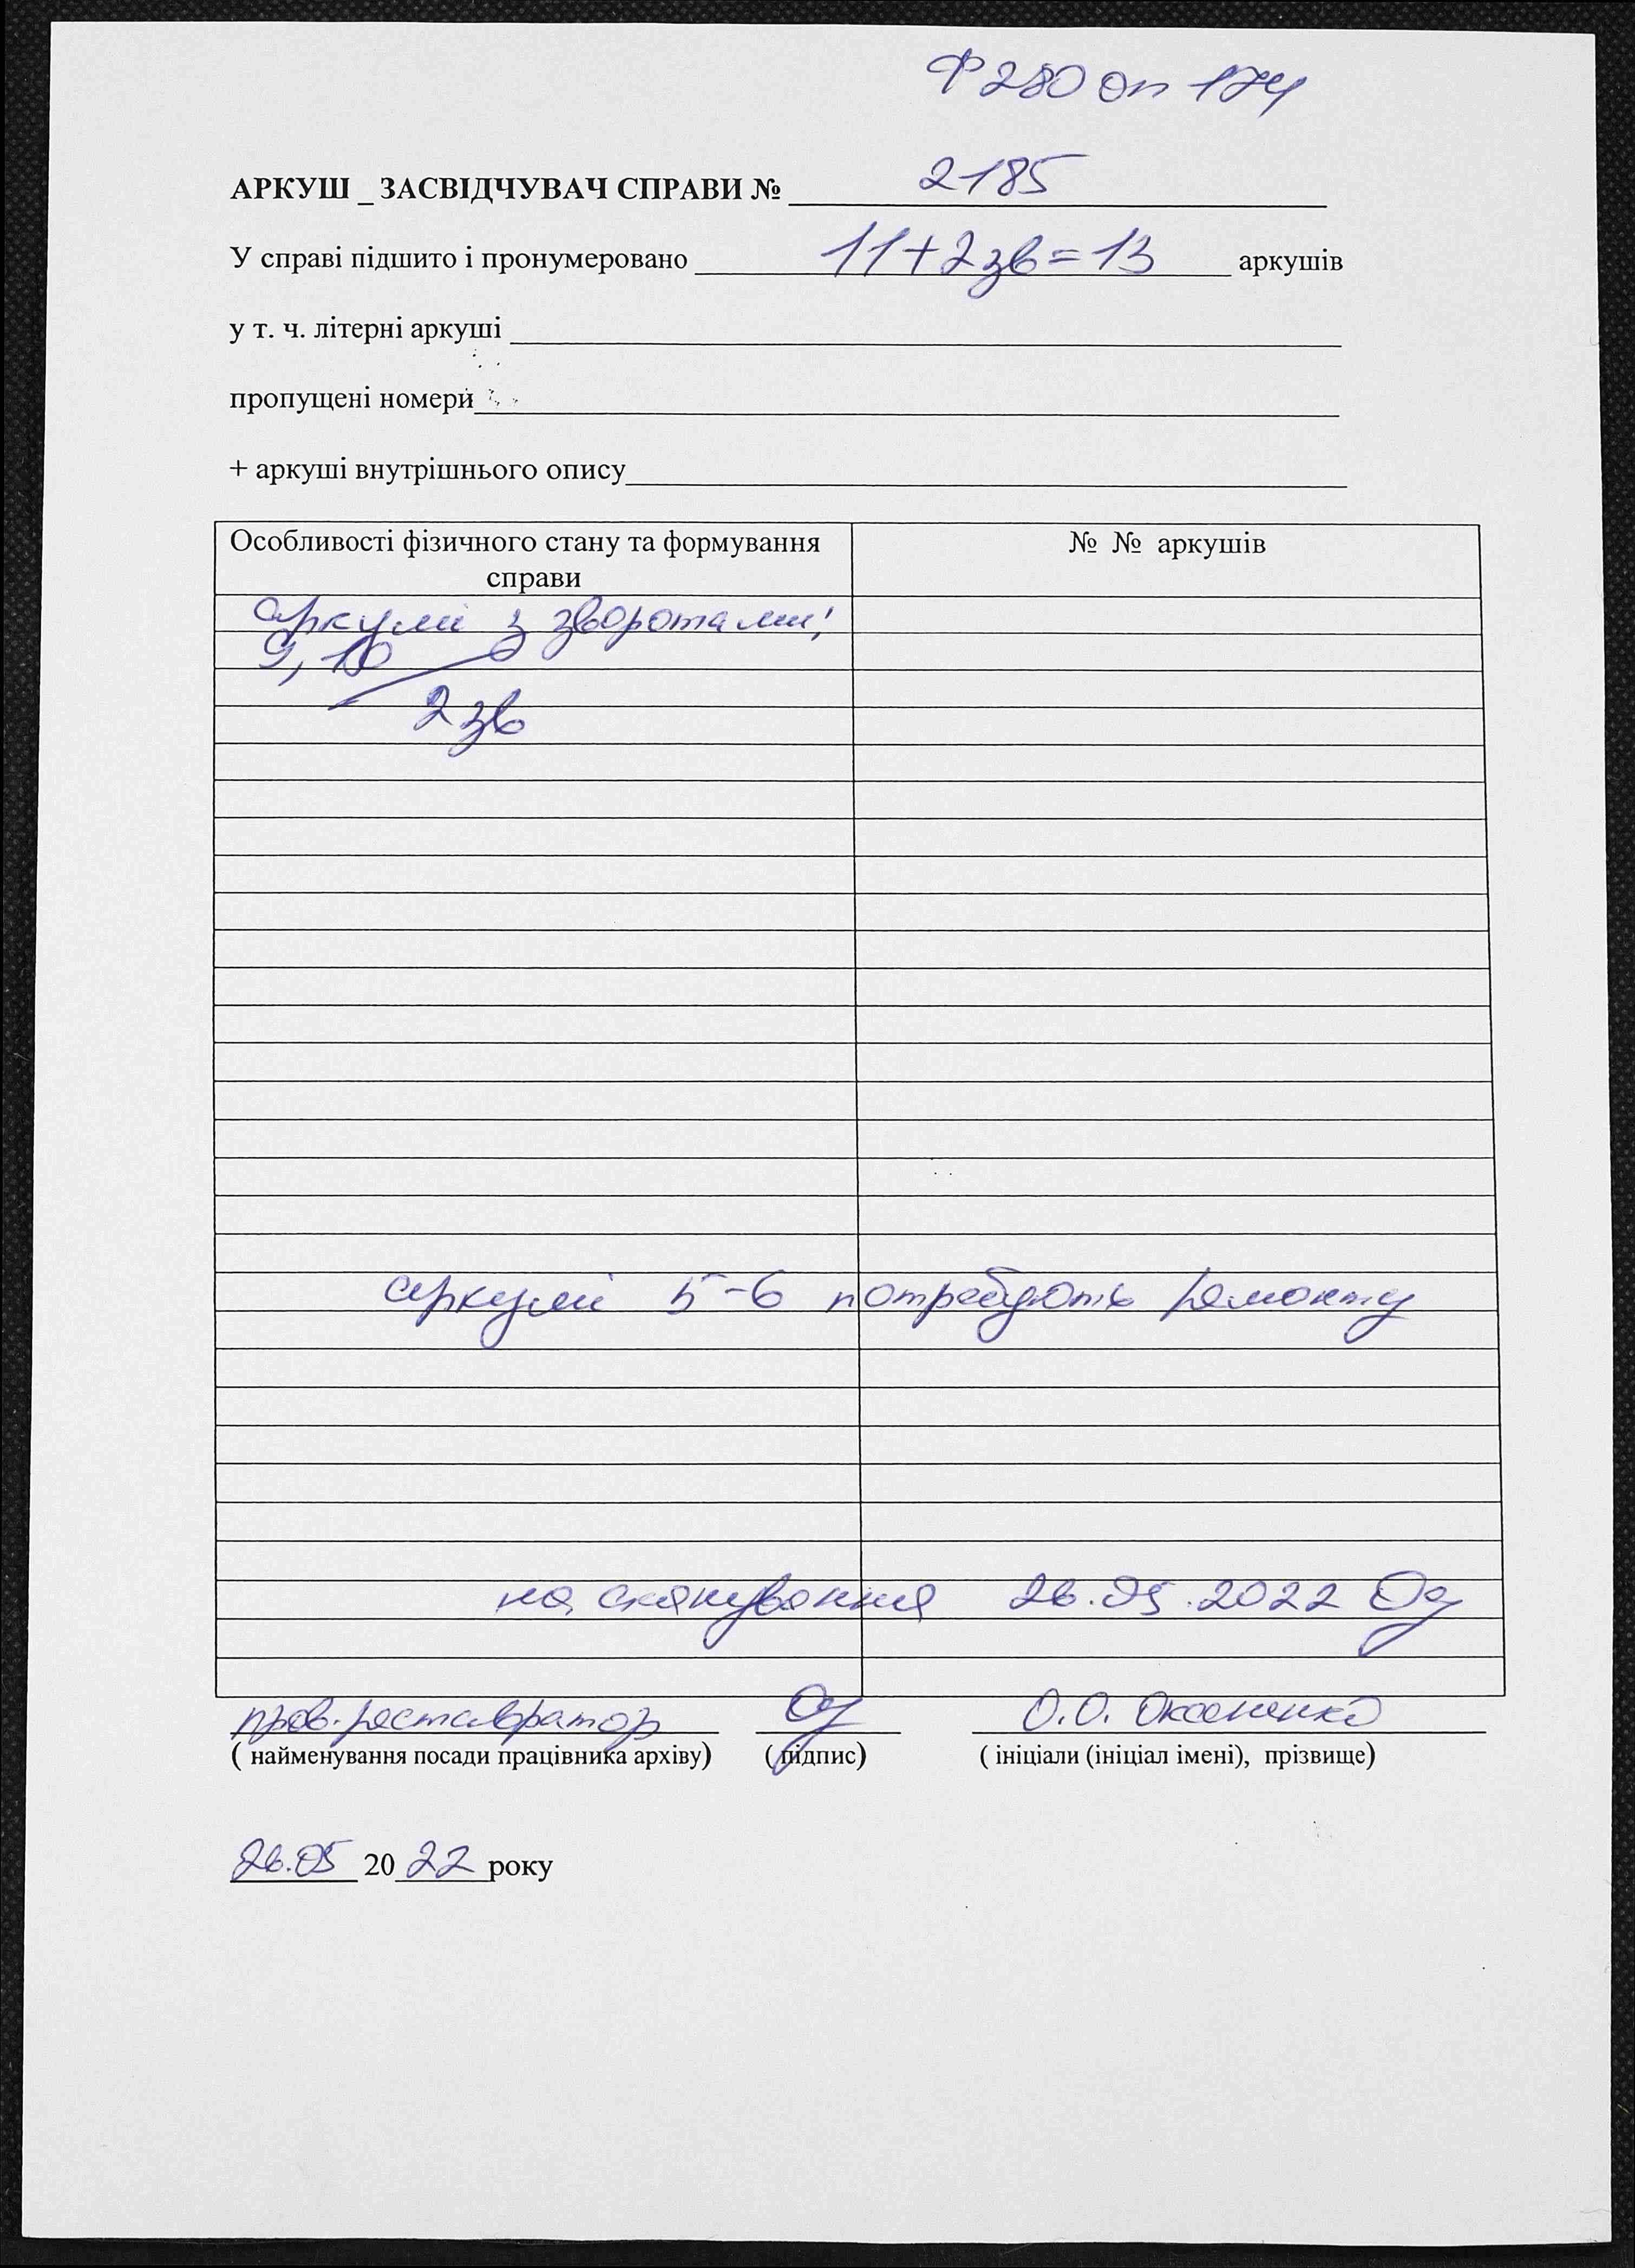 Ф 280 оп 174
АРКУШ _ ЗАСВІДЧУВАЧ СПРАВИ № 2185
У справі підшито і пронумеровано 11+2зв=13 аркушів
у т. ч. літерні аркуші
пропущені номери
+ аркуші внутрішнього опису
Особливості фізичного стану та формування
справи
№ № аркушів
аркуші з зворотами:
9, 10
2 зв
аркуші 5-6 потребують ремонту
на сканування 26.05.2022
пров. реставратор О.О. Оксаненко
( найменування посади працівника архіву) ( підпис) ( ініціали (ініціал імені), прізвище)
26.05 2022 року